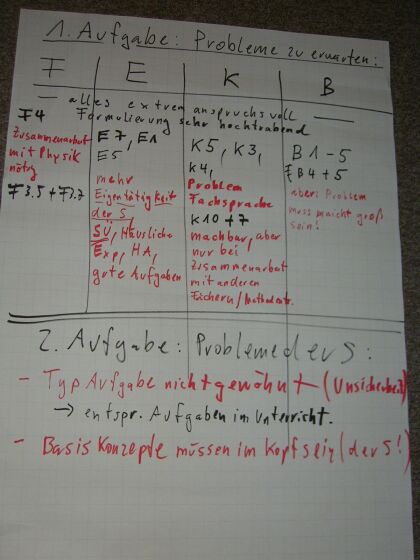 1. Aufgabe: Probleme zu erwarten:
F E K B
— alles extrem anspruchsvoll —
Formulierung sehr hochtrabend
F4
Zusammenarbeit
mit Physik
nötig
F3.5 + F3.7
E7, E1
E5
mehr
Eigentätigkeit
der S,
SÜ, Häusliche
Exp, HA,
gute Aufgaben
K5, K3,
K4,
Problem
Fachsprache
K10 + 7
machbar, aber
nur bei
Zusammenarbeit
mit anderen
Fächern/
B 1-5
B4 + 5
aber: Problem
muss nicht groß
sein!
2. Aufgabe: Probleme der S:
- Typ Aufgabe nicht gewöhnt (Unsicherheit)
→ entspr. Aufgaben im Unterricht.
- Basis Konzepte müssen im Kopf sein (der S!)